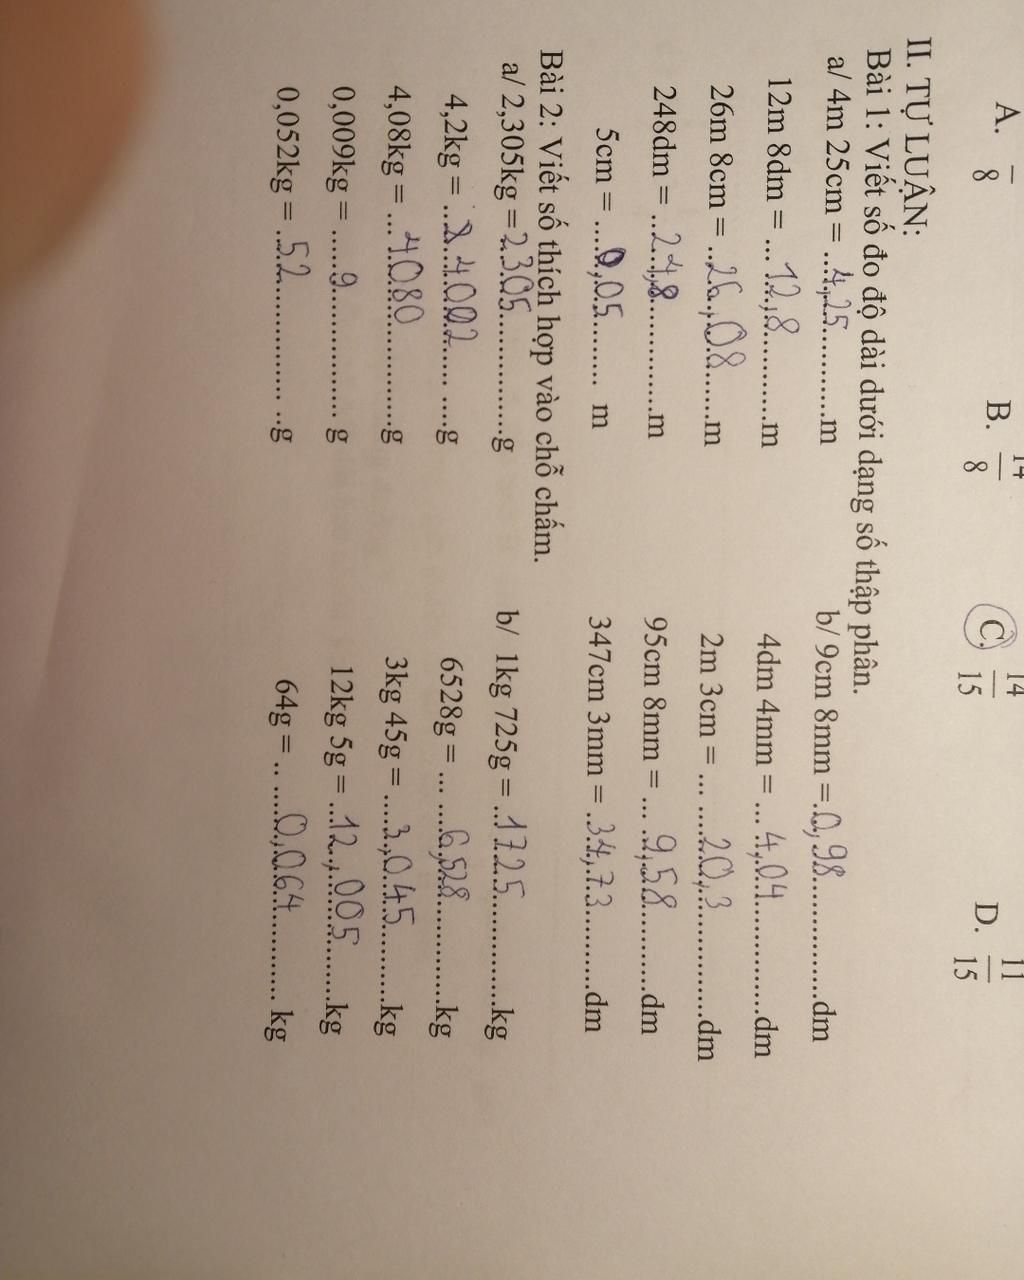 A. 8 B. 14/8 C. 14/15 D. 11/15
II. TỰ LUẬN:
Bài 1: Viết số đo độ dài dưới dạng số thập phân.
a/ 4m 25cm = ....4,25...........m b/ 9cm 8mm =.0,98..............dm
12m 8dm = ... 12,8..........m 4dm 4mm = ... 4,04.............dm
26m 8cm = ..26,08......m 2m 3cm = ... ....20,3.............dm
248dm = ..24,8.............m 95cm 8mm = ... 9,58...........dm
5cm = ....0,05........ m 347cm 3mm = .34,73..........dm
Bài 2: Viết số thích hợp vào chỗ chấm.
a/ 2,305kg =2305.............g b/ 1kg 725g = ..1725..............kg
4,2kg = ... 4002..... ....g 6528g = ... ...6,528............kg
4,08kg = ... 4080...........g 3kg 45g = ....3,045..........kg
0,009kg = .....9............. g 12kg 5g = ...12,005........kg
0,052kg = .52............... ..g 64g = .. ....0,064.......... kg